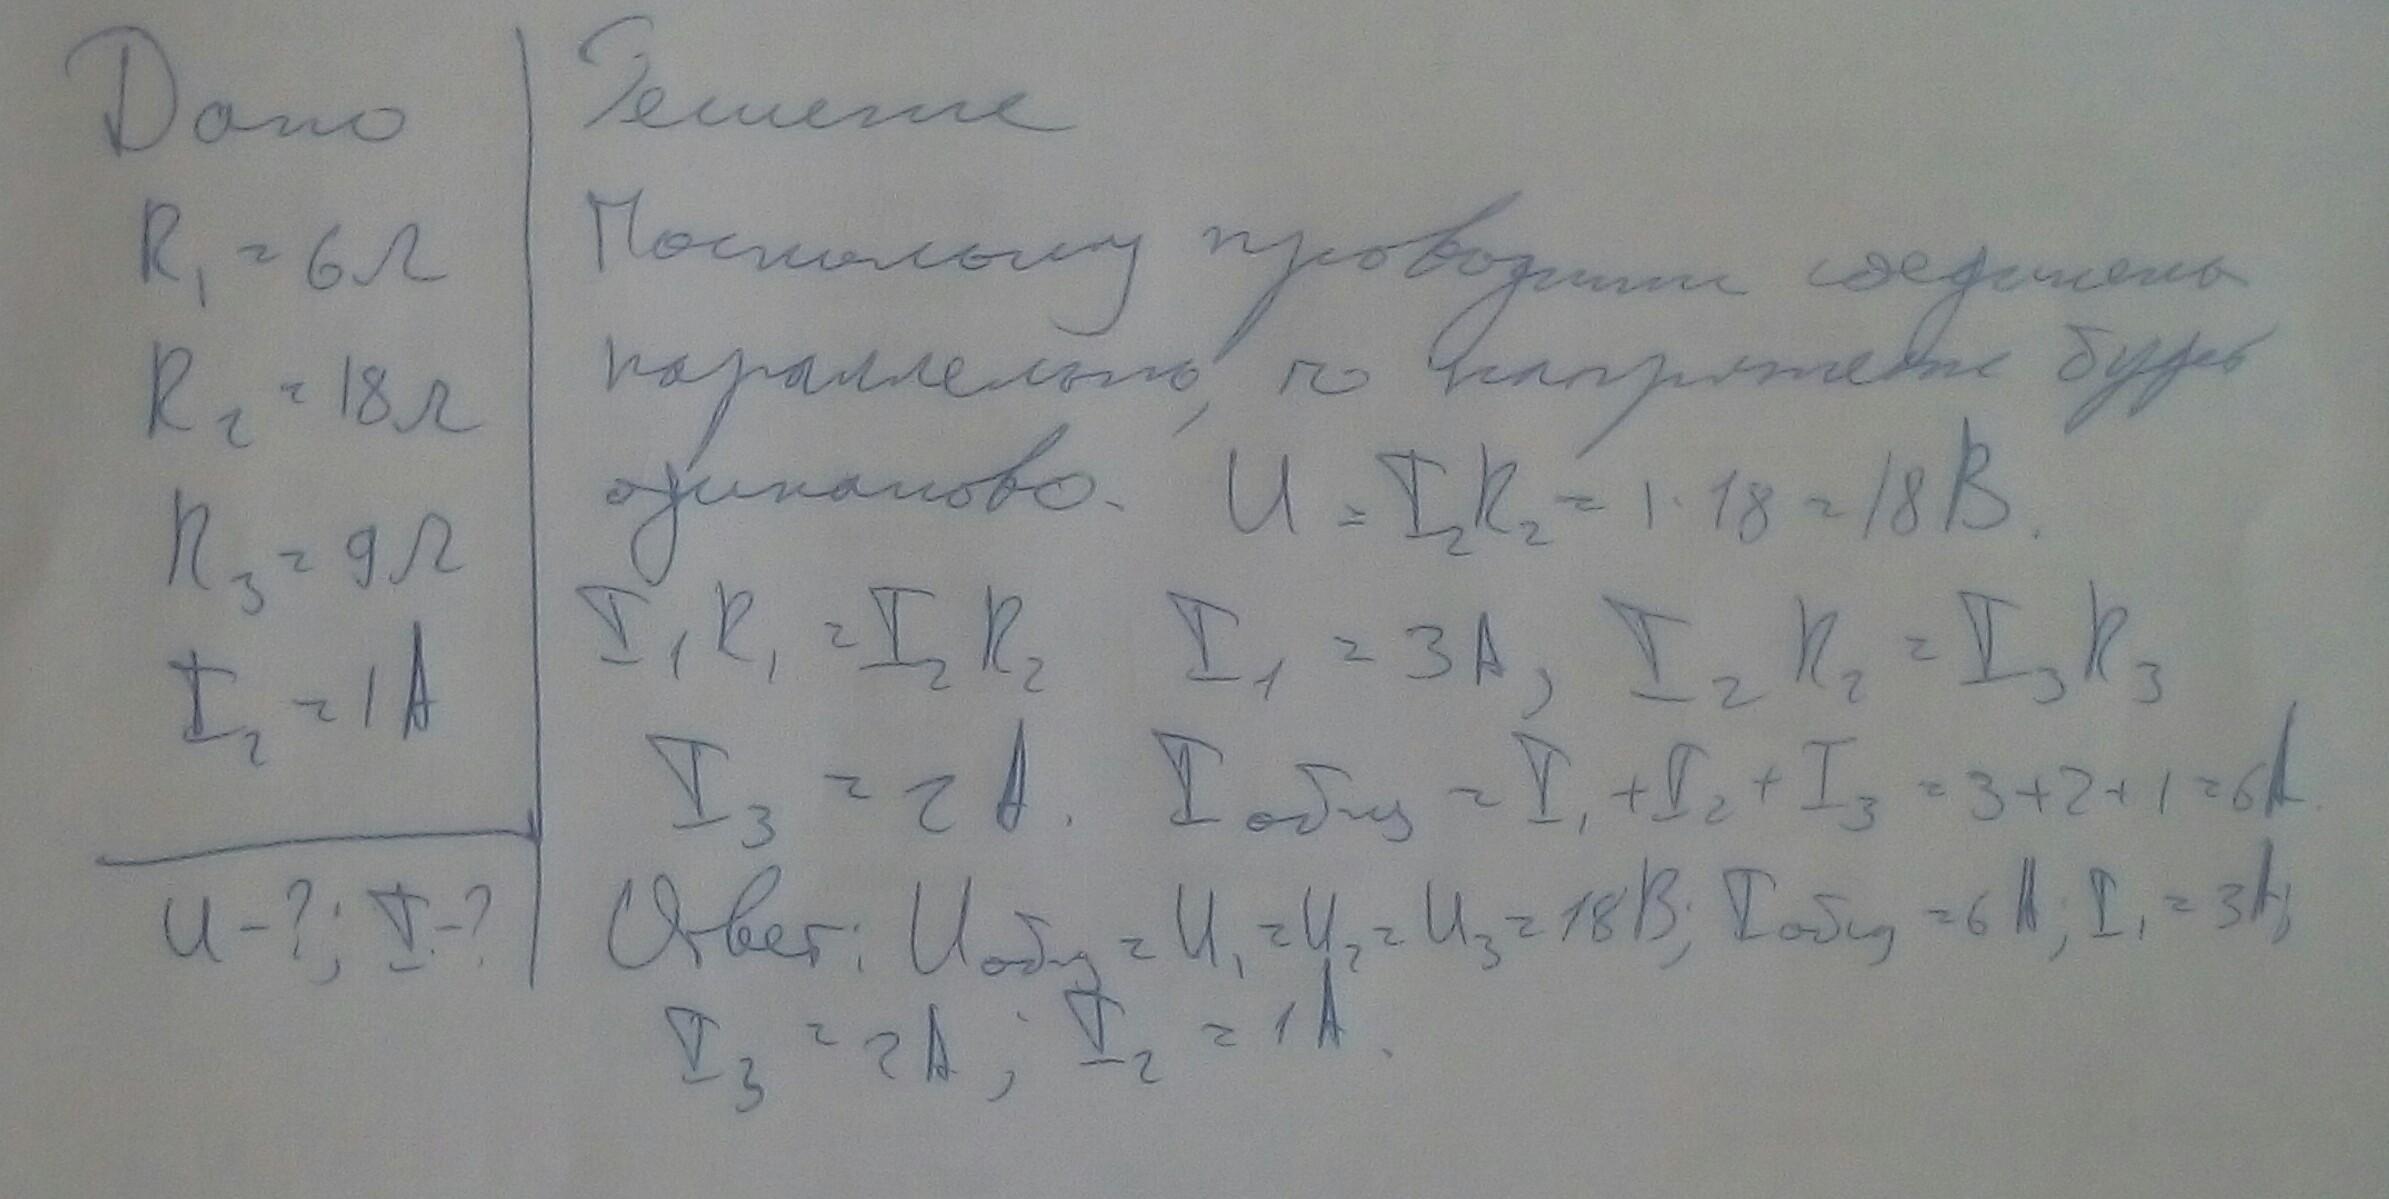 Дано
R₁ = 6Ω
R₂ = 18Ω
R₃ = 9Ω
I₂ = 1A
U-?; I-?
Решение
Поскольку проводники соединены
параллельно, то напряжение будет
одинаково. U = I₂R₂ = 1·18 = 18В.
I₁R₁ = I₂R₂ I₁ = 3A, I₂R₂ = I₃R₃
I₃ = 2A. Iобщ = I₁ + I₂ + I₃ = 3+2+1 = 6A.
Ответ: Uобщ = U₁ = U₂ = U₃ = 18В; Iобщ = 6A; I₁ = 3A;
I₃ = 2A; I₂ = 1A.